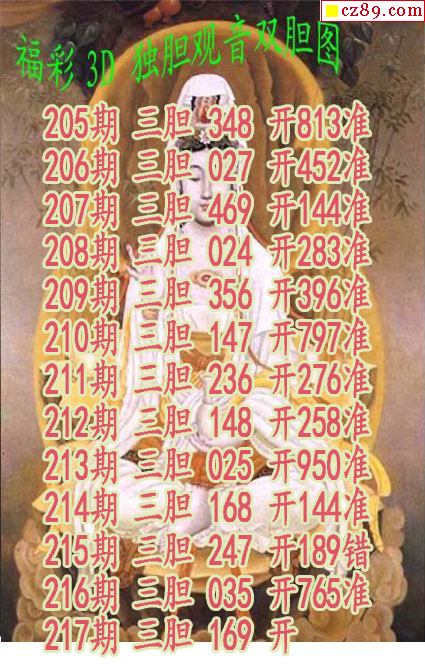 cz89.com
福彩 3D 独胆观音双胆图
205期 三胆 348 开813准
206期 三胆 027 开452准
207期 三胆 469 开144准
208期 三胆 024 开283准
209期 三胆 356 开396准
210期 三胆 147 开797准
211期 三胆 236 开276准
212期 三胆 148 开258准
213期 三胆 025 开950准
214期 三胆 168 开144准
215期 三胆 247 开189错
216期 三胆 035 开765准
217期 三胆 169 开